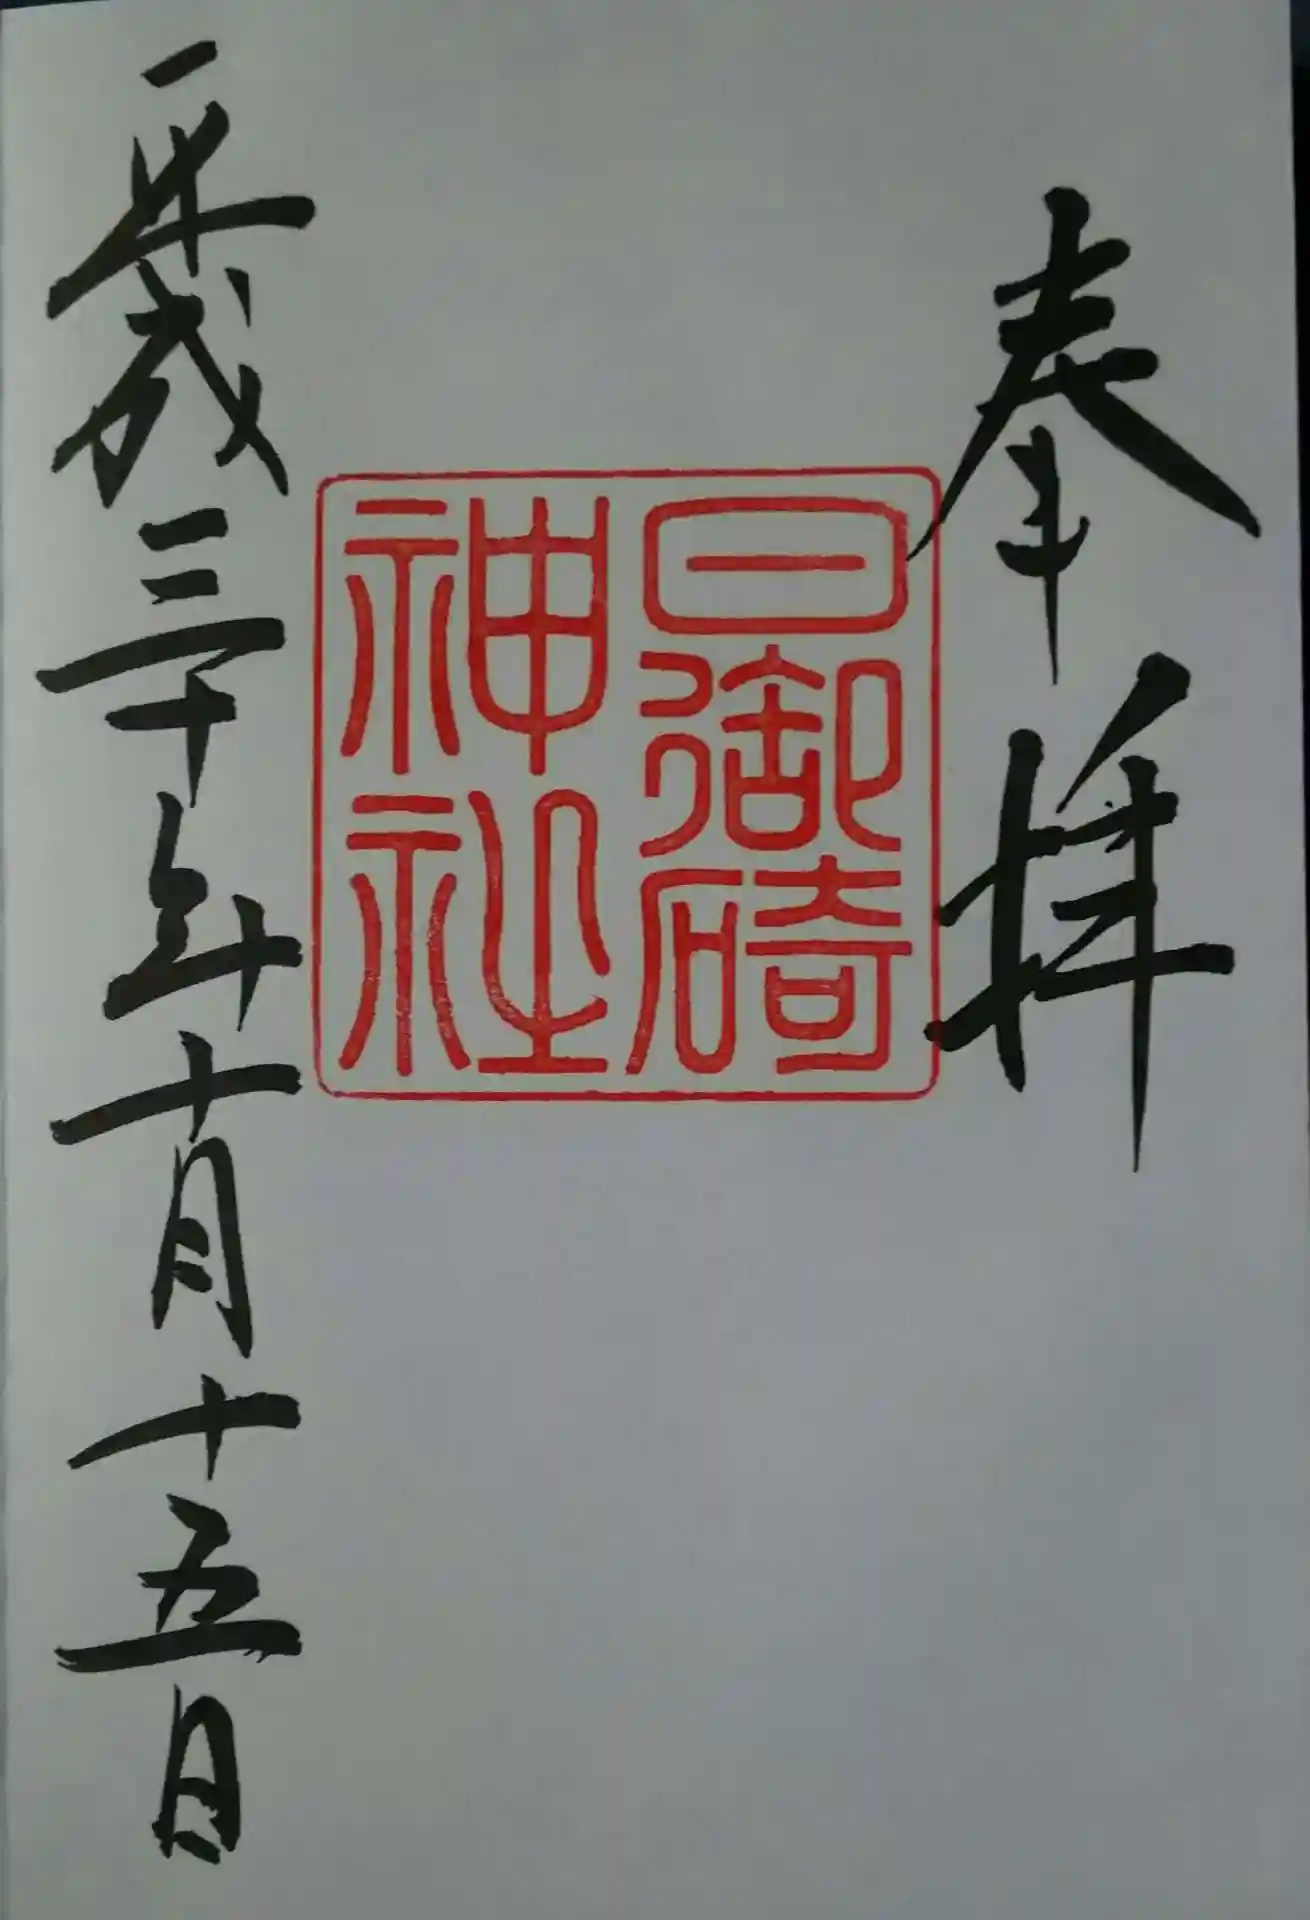 奉拝
日御碕
神社
平成三十年十月十五日